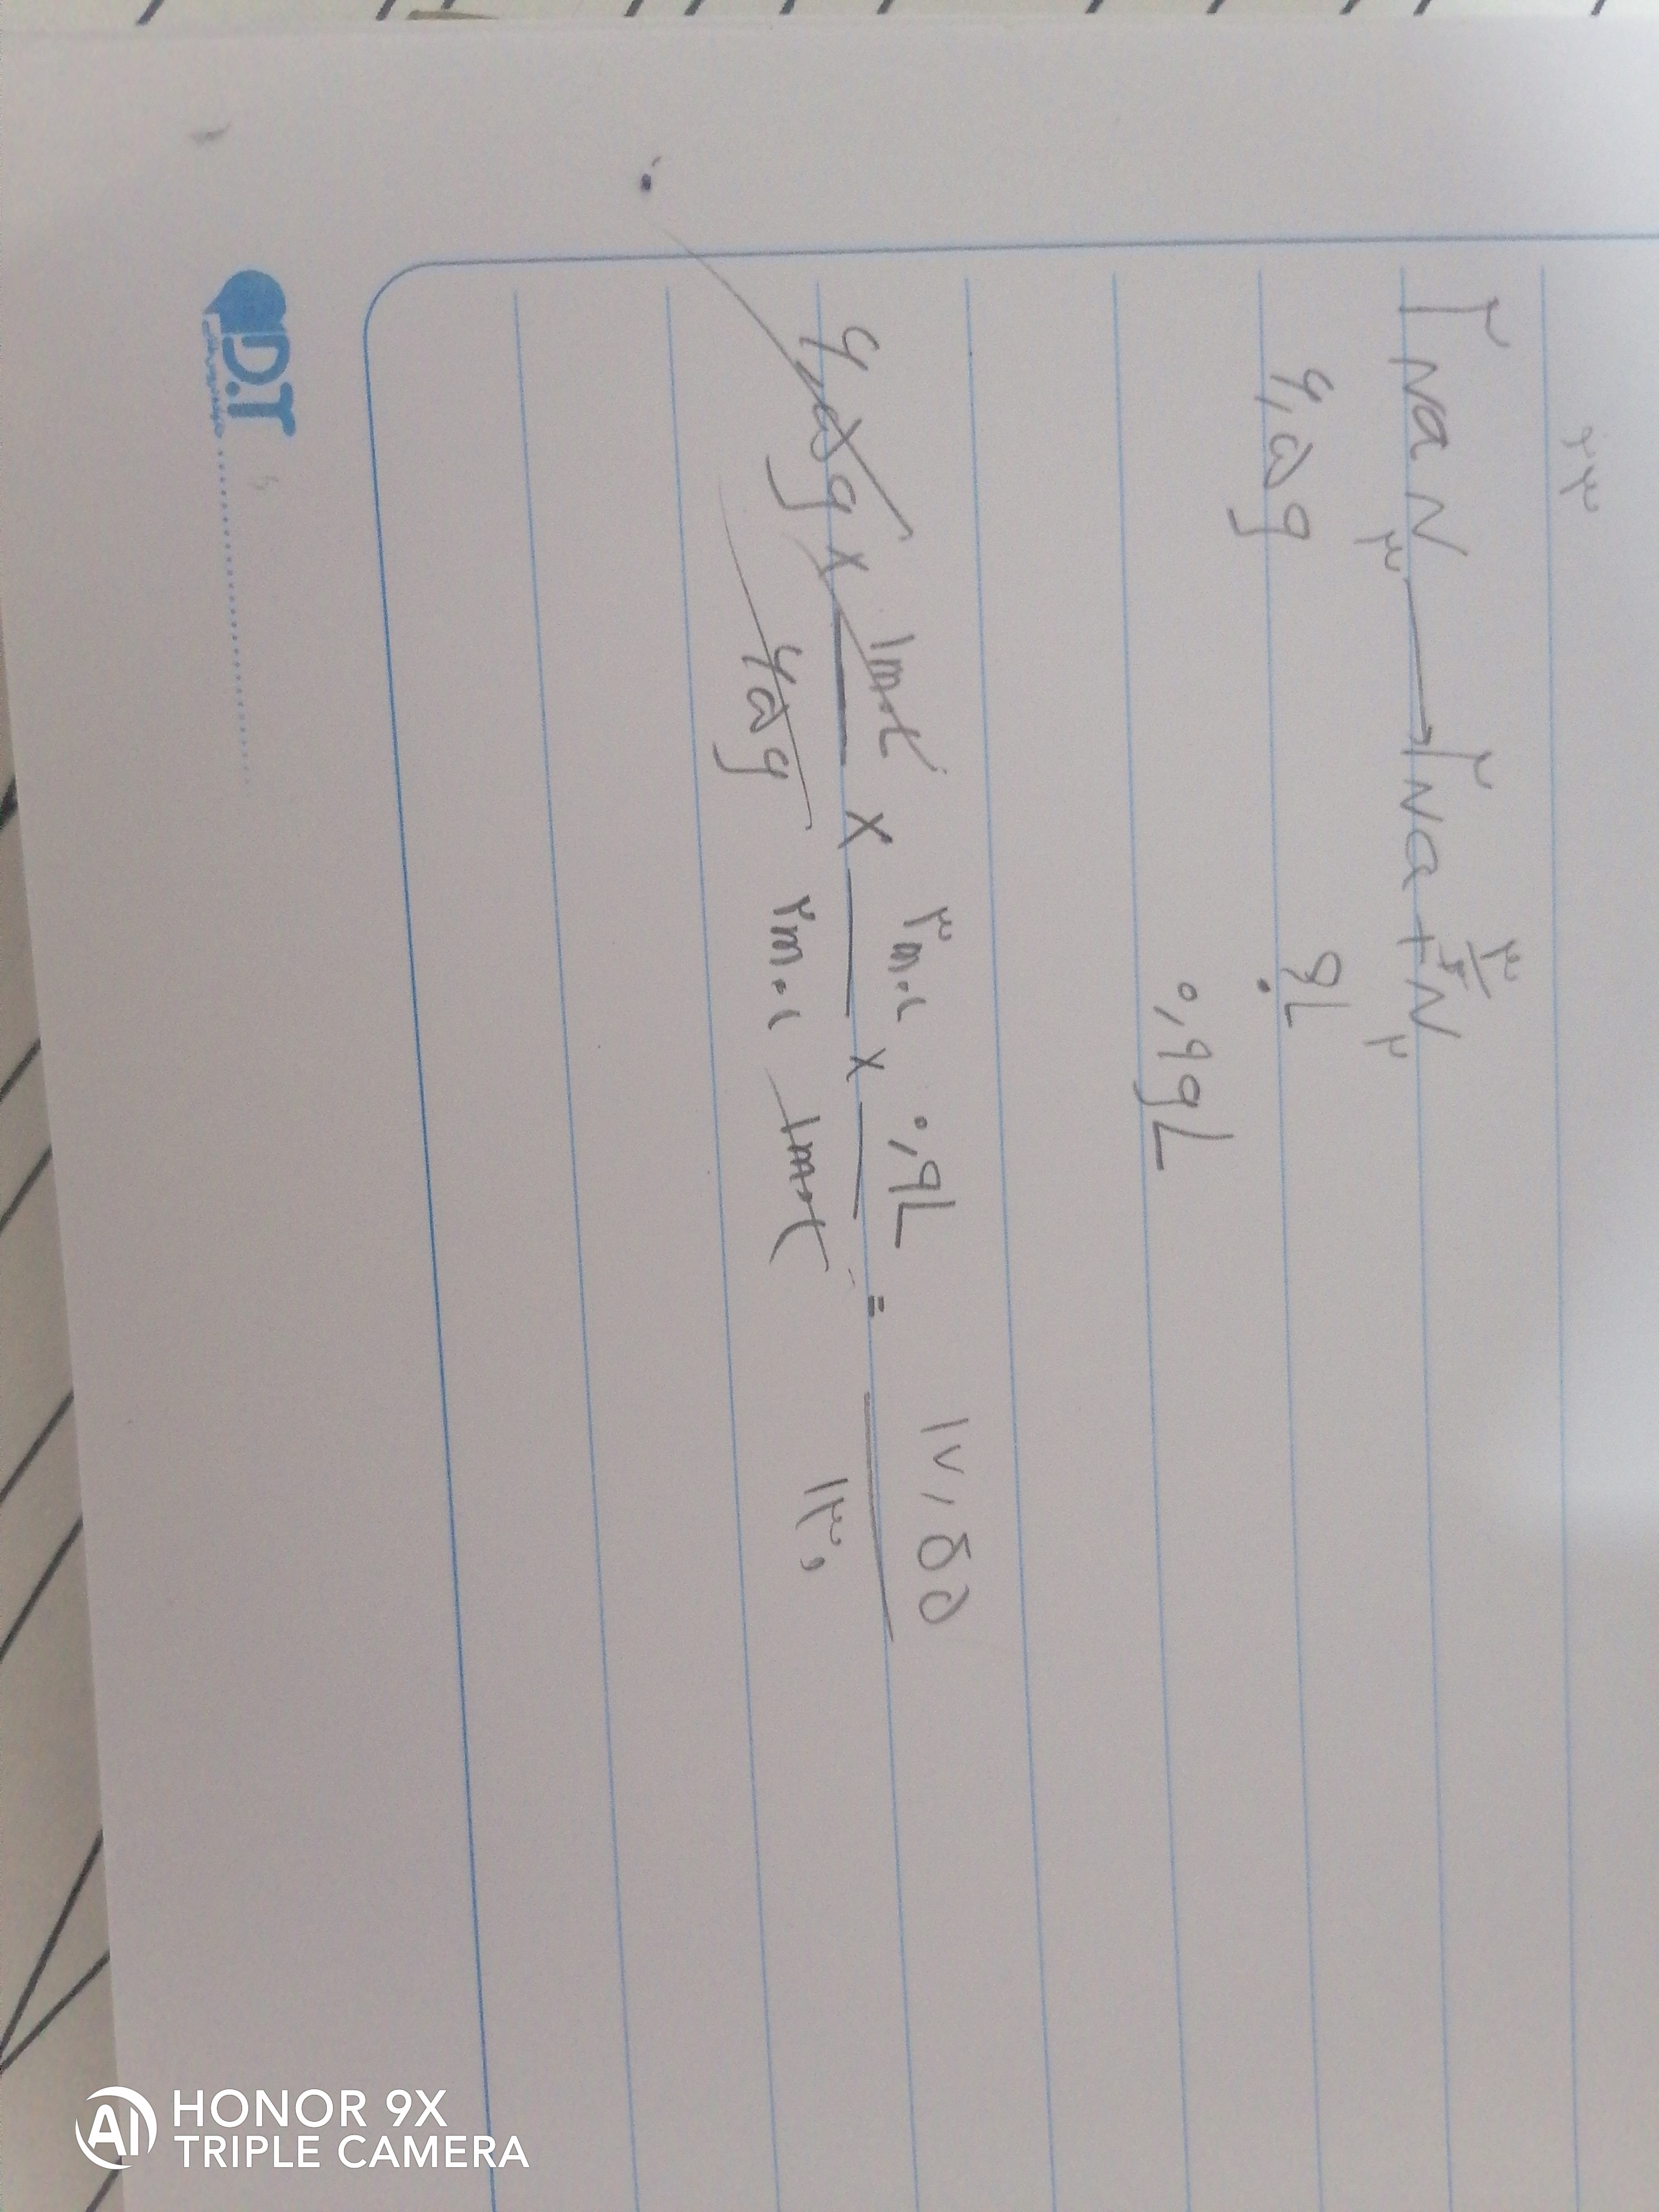 ۲۳
۲NaN۳ → ۲Na + ۳N۲
۶,۵g ۹L
۰,۹gL
۶,۵g × ۱mol/۶۵g × ۳mol/۲mol × ۰,۹L/۱mol = ۱۷,۵۵/۱۳۰
D.T
HONOR 9X
TRIPLE CAMERA